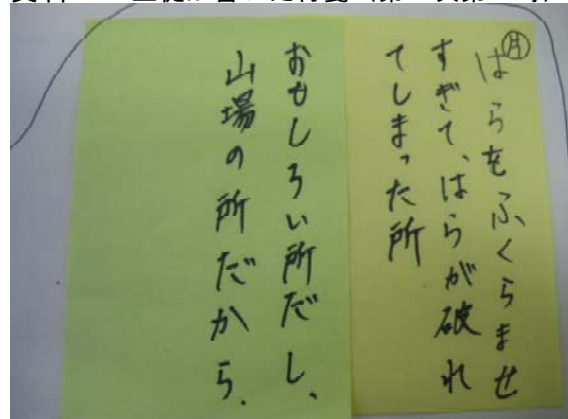 月
はらをふくらませ
すぎて、はらが破れ
てしまった所
おもしろい所だし、
山場の所だから.